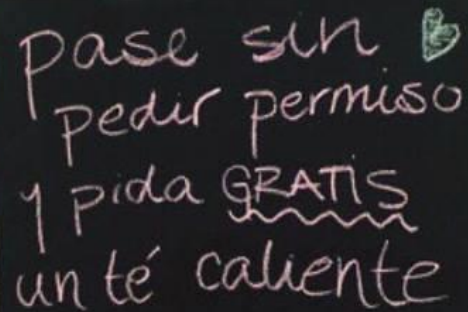 pase sin
pedir permiso
y pida GRATIS
un té caliente